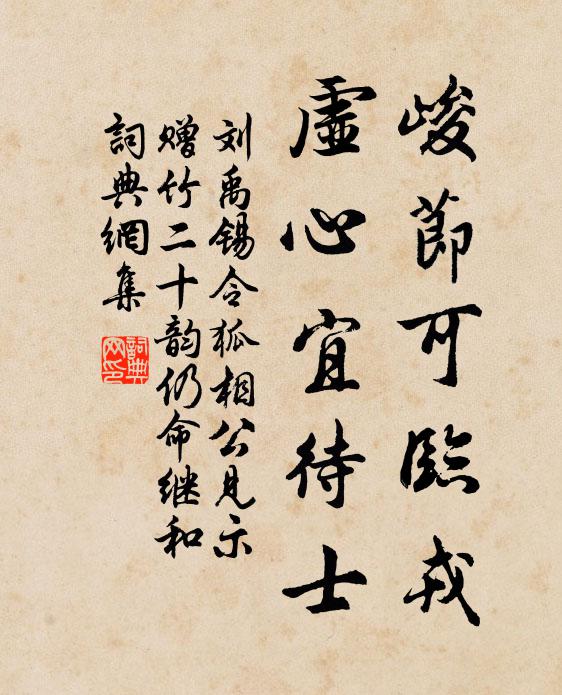 峻節可臨戎
虛心宜待士
刘禹锡令狐相公见示
赠竹二十韵仍命继和
詞典網集
詞典網印